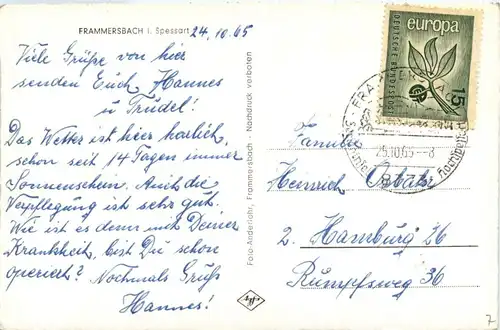 FRAMMERSBACH i. Spessart
24.10.65
Viele Grüße von hier
senden Euch Hannes
u. Trudel!
Das Wetter ist hier herlich,
schon seit 14 Tagen immer
Sonnenschein. Auch die
Verpflegung ist sehr gut.
Wie ist es denn mit Deiner
Krankheit, bist Du schon
operiert? Nochmals Gruß
Hannes!
Foto-Anderlohr, Frammersbach - Nachdruck verboten
Agfa
europa
DEUTSCHE BUNDESPOST
15
25.10.65-8
Familie
Heinrich
2. Hamburg 26
Rumpfsweg 36
7